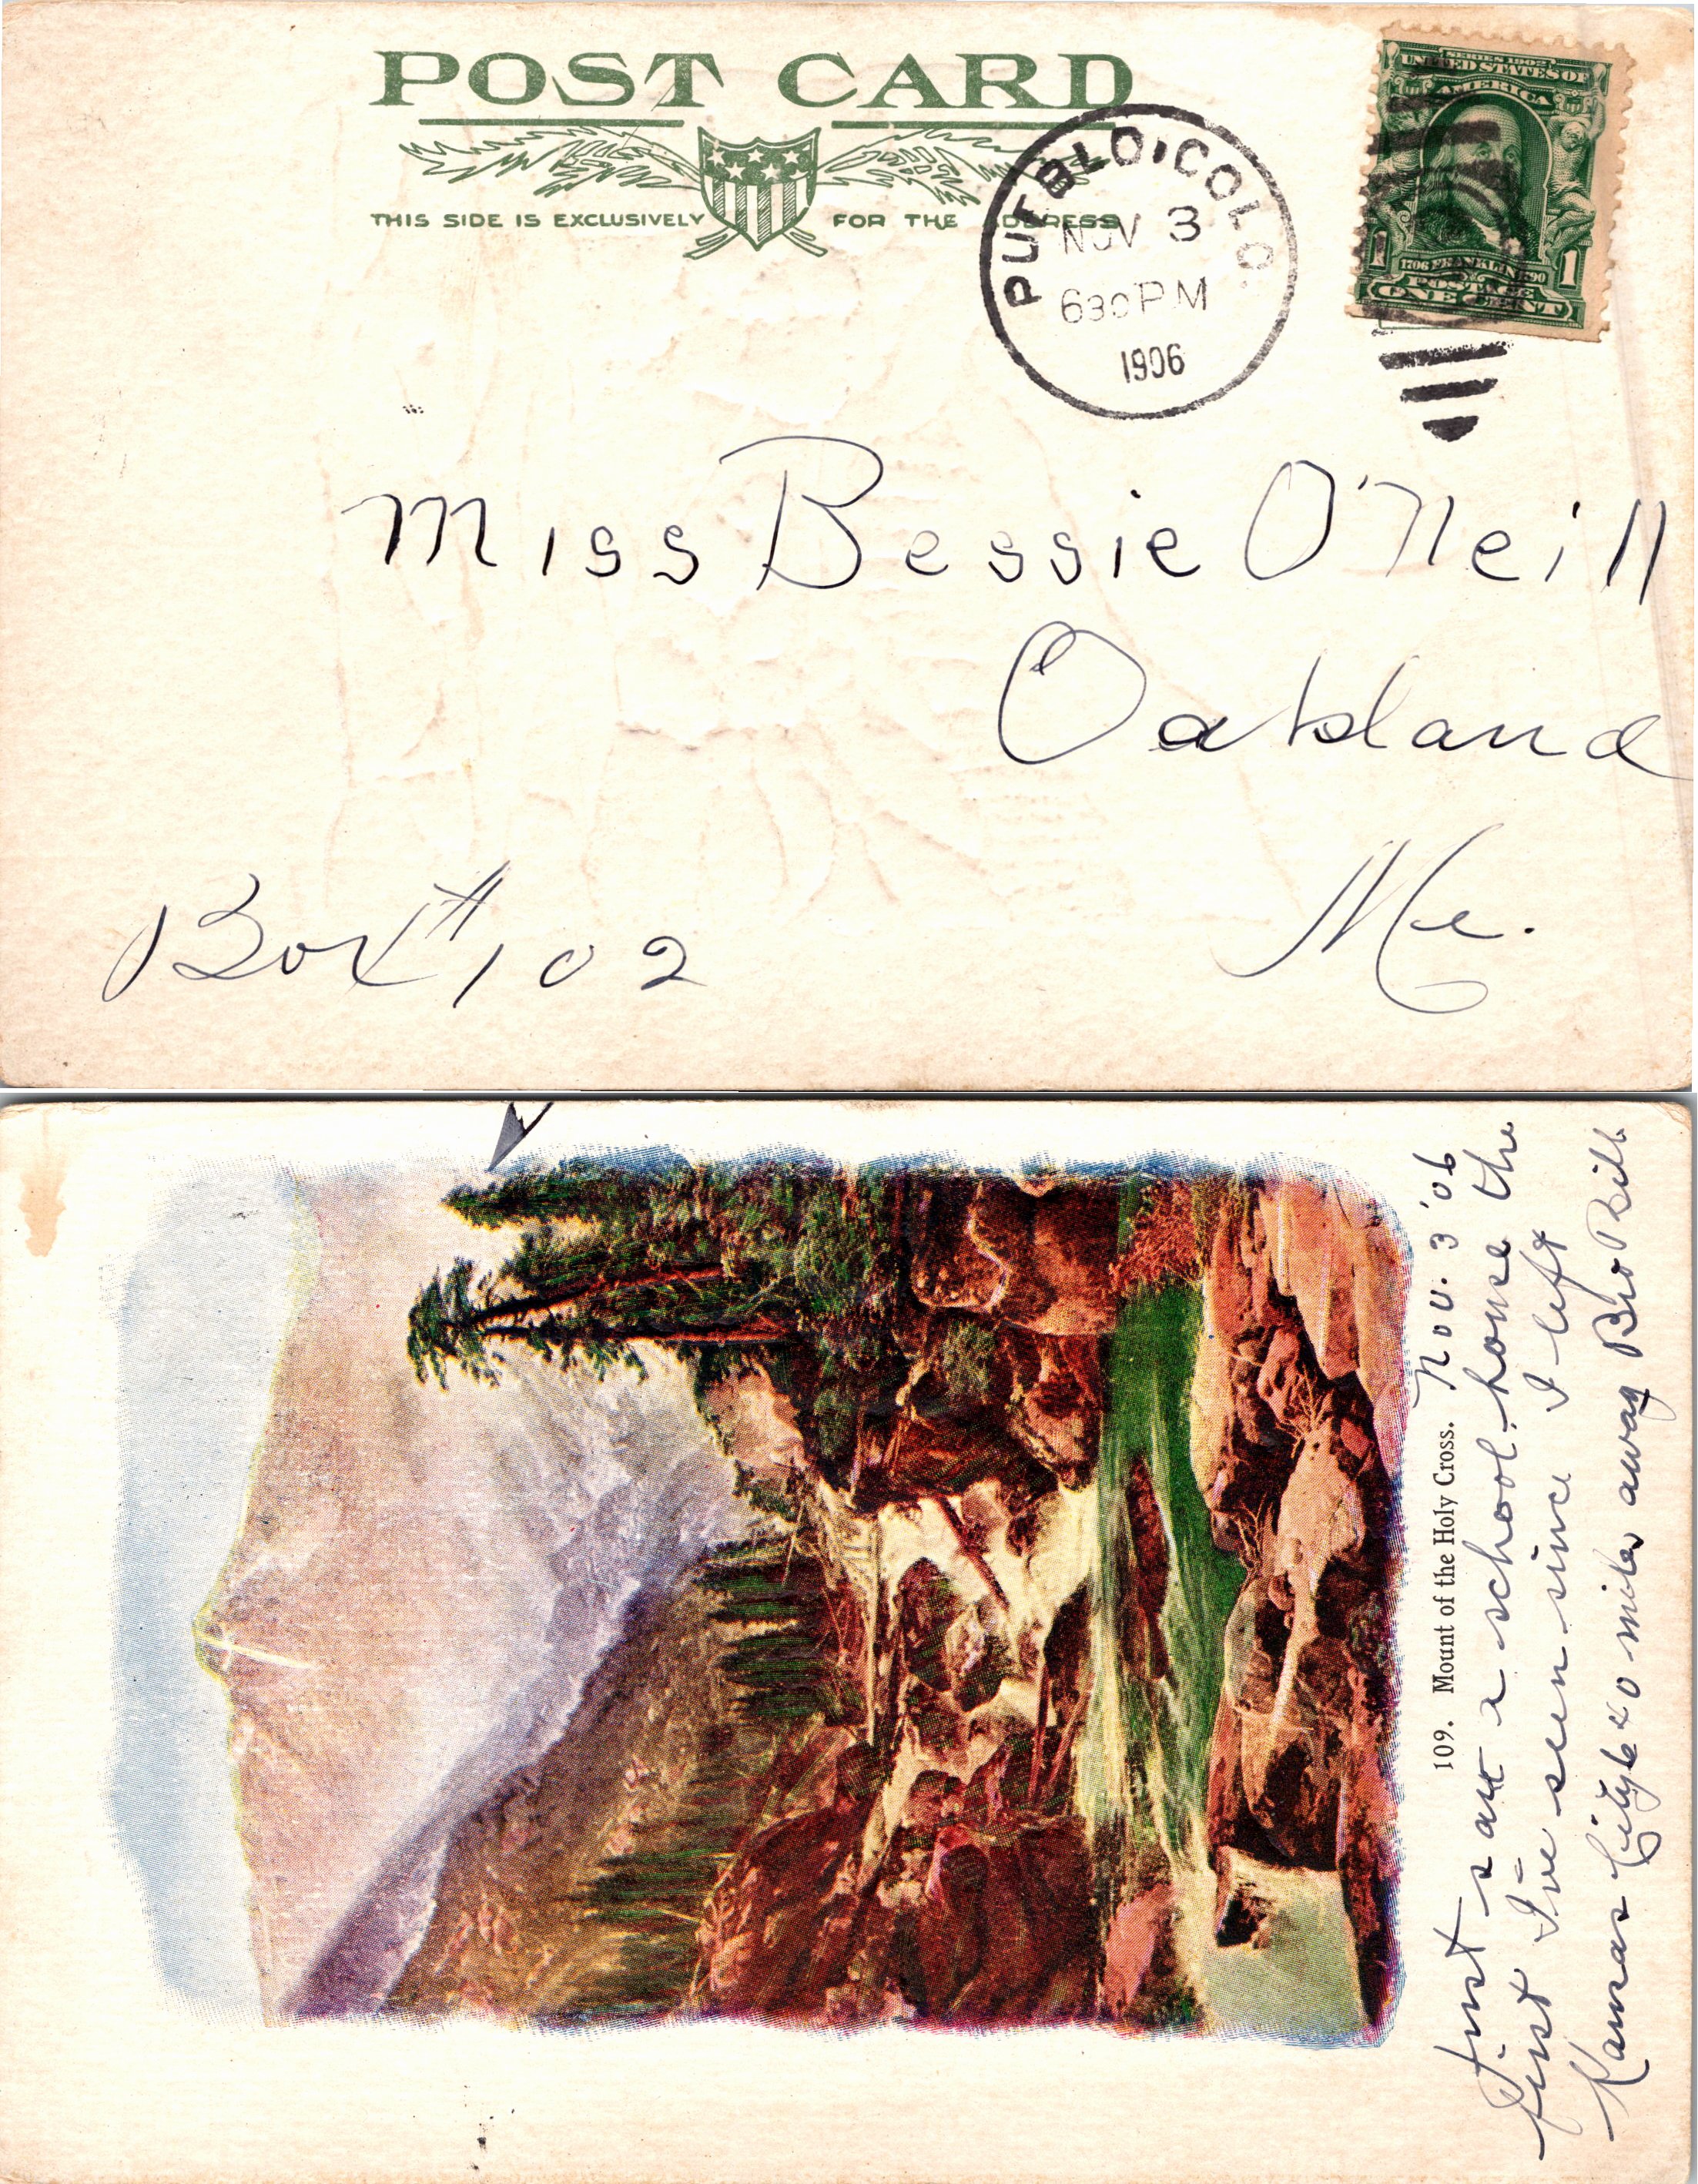 POST CARD
THIS SIDE IS EXCLUSIVELY FOR THE ADDRESS
PUEBLO, COLO.
NOV 3
630 PM
1906
SERIES 1902
UNITED STATES OF
AMERICA
1706 FRANKLIN 1790
POSTAGE
1 ONE CENT 1
Miss Bessie O'Neill
Oakland
Me.
Box # 102
109. Mount of the Holy Cross.
Nov. 3 '06
Just saw a school-house the
first I've seen since I left
Kansas City miles away Bro Bill